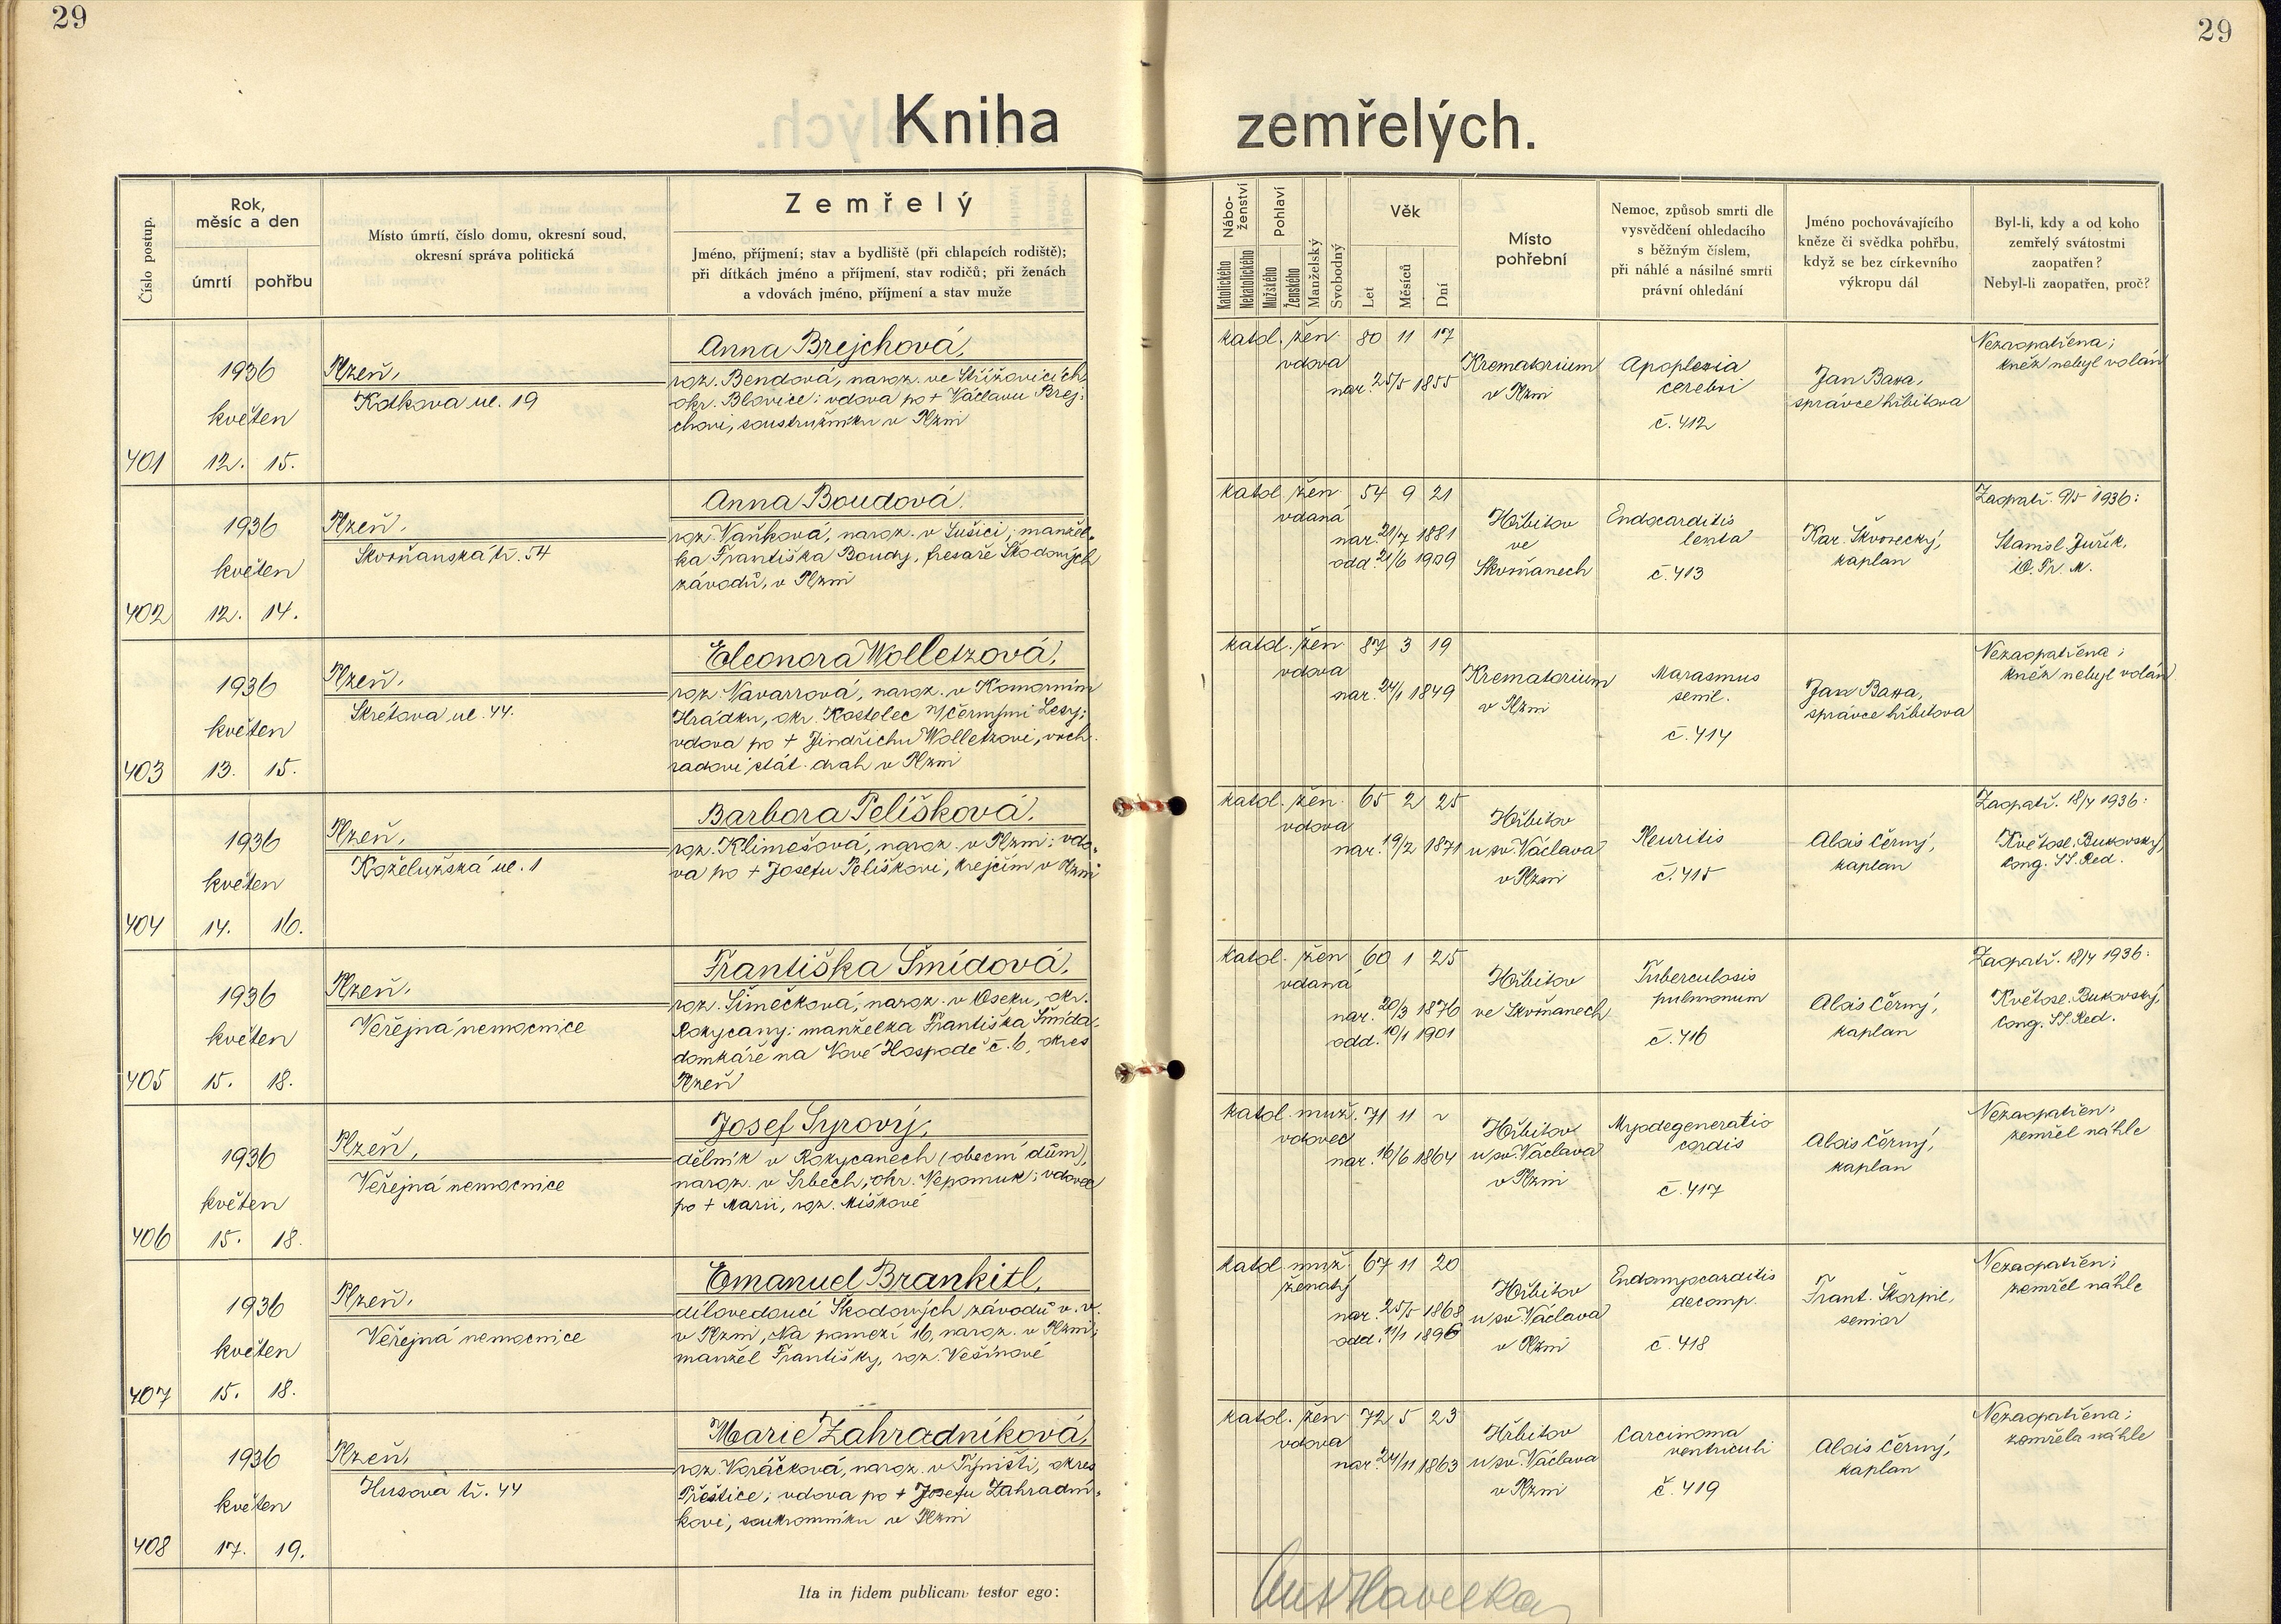 29
29
Kniha zemřelých.
Číslo postup.
Rok,
měsíc a den
úmrtí
pohřbu
Místo úmrtí, číslo domu, okresní soud,
okresní správa politická
Zemřelý
Jméno, příjmení; stav a bydliště (při chlapcích rodiště);
při dítkách jméno a příjmení, stav rodičů; při ženách
a vdovách jméno, příjmení a stav muže
Nábo-
ženství
Katolického
Nekatolického
Pohlaví
Mužského
Ženského
Manželský
Svobodný
Věk
Let
Měsíců
Dní
Místo
pohřební
Nemoc, způsob smrti dle
vysvědčení ohledacího
s běžným číslem,
při náhlé a násilné smrti
právní ohledání
Jméno pochovávajícího
kněze či svědka pohřbu,
když se bez církevního
výkropu dál
Byl-li, kdy a od koho
zemřelý svátostmi
zaopatřen?
Nebyl-li zaopatřen, proč?
401
1936
květen
12. 15.
Plzeň,
Kolkova ul. 19
Anna Brejchová,
roz. Bendová, naroz. ve Střížovicích,
okr. Blovice; vdova po + Václavu Brej-
chovi, soustružníku v Plzni
katol. žen. 80 11 17
vdova
nar. 25/5 1855
Krematorium
v Plzni
Apoplexia
cerebri
č. 412
Jan Bawa,
správce hřbitova
Nezaopatřena;
kněz nebyl volán
402
1936
květen
12. 14.
Plzeň,
Skvrňanská tř. 54
Anna Boudová,
roz. Vaňková, naroz. v Sušici; manžel-
ka Františka Boudy, fresaře Škodových
závodů, v Plzni
katol. žen. 54 9 21
vdaná
nar. 21/7 1881
odd. 21/6 1909
Hřbitov
ve
Skvrňanech
Endocarditis
lenta
č. 413
Kar. Škvorecký,
kaplan
Zaopatř. 9/5 1936:
Stanisl. Juřík,
O. Pr. M.
403
1936
květen
13. 15.
Plzeň,
Skrétova ul. 44.
Eleonora Wolletzová,
roz. Navarrová, naroz. v Komorním
Hrádku, okr. Kostelec n/Černými Lesy;
vdova po + Jindřichu Wolletzovi, vrch.
radovi stát. drah v Plzni
katol. žen 87 3 19
vdova
nar. 24/1 1849
Krematorium
v Plzni
Marasmus
senil.
č. 414
Jan Bawa,
správce hřbitova
Nezaopatřena;
kněz nebyl volán
404
1936
květen
14. 16.
Plzeň,
Koželužská ul. 1
Barbora Pelíšková,
roz. Klimešová, naroz. v Plzni; vdo-
va po + Josefu Pelíškovi, krejčím v Plzni
katol. žen. 65 2 25
vdova
nar. 19/2 1871
Hřbitov
u sv. Václava
v Plzni
Pleuritis
č. 415
Alois Černý,
kaplan
Zaopatř. 18/4 1936:
Květosl. Bukovský,
Cong. SS. Red.
405
1936
květen
15. 18.
Plzeň,
Veřejná nemocnice
Františka Šmídová,
roz. Šimečková, naroz. v Oseku, okr.
Rokycany; manželka Františka Šmída,
domkáře na Nové Hospodě č. 6, okres
Plzeň
katol. žen 60 1 25
vdaná
nar. 20/3 1876
odd. 10/1 1901
Hřbitov
ve Skvrňanech
Tuberculosis
pulmonum
č. 416
Alois Černý,
kaplan
Zaopatř. 18/4 1936:
Květosl. Bukovský,
Cong. SS. Red.
406
1936
květen
15. 18.
Plzeň,
Veřejná nemocnice
Josef Syrový,
dělník v Rokycanech (obecní dům),
naroz. v Srbech, okr. Nepomuk; vdovec
po + Marii, roz. Míškové
katol. muž. 71 11 ~
vdovec
nar. 16/6 1864
Hřbitov
u sv. Václava
v Plzni
Myodegeneratio
cordis
č. 417
Alois Černý,
kaplan
Nezaopatřen;
zemřel náhle
407
1936
květen
15. 18.
Plzeň,
Veřejná nemocnice
Emanuel Brankitl,
dílovedoucí Škodových závodů v. v.
v Plzni, Na pomezí 16, naroz. v Plzni;
manžel Františky, roz. Vešínové
katol. muž. 67 11 20
ženatý
nar. 25/5 1868
odd. 11/1 1896
Hřbitov
u sv. Václava
v Plzni
Endomyocarditis
decomp.
č. 418
Frant. Škorpil,
senior
Nezaopatřen;
zemřel náhle
408
1936
květen
17. 19.
Plzeň,
Husova tř. 44
Marie Zahradníková,
roz. Voráčková, naroz. v Týništi, okres
Přeštice; vdova po + Josefu Zahradní-
kovi, soukromníku v Plzni
katol. žen 72 5 23
vdova
nar. 24/11 1863
Hřbitov
u sv. Václava
v Plzni
Carcinoma
ventriculi
č. 419
Alois Černý,
kaplan
Nezaopatřena;
zemřela náhle
Ita in fidem publicam testor ego:
Ant Havelka